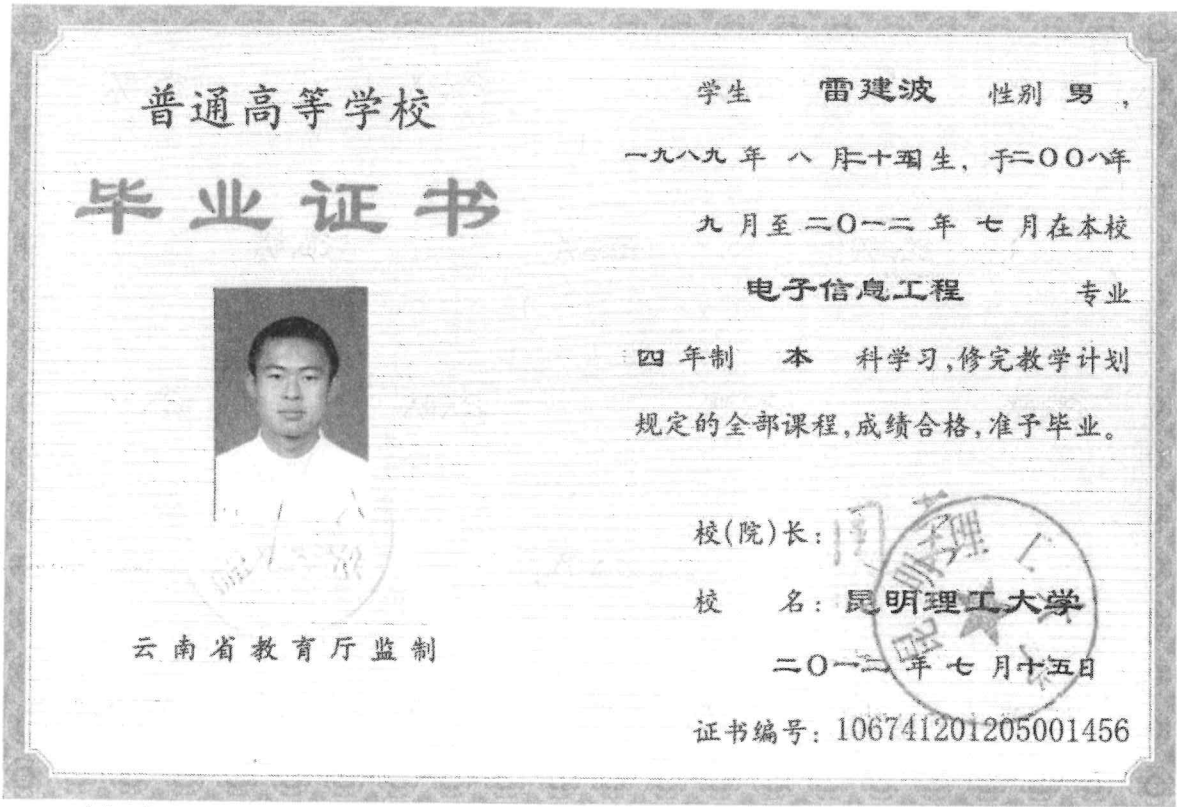 普通高等学校
毕业证书
云南省教育厅监制
学生 雷建波 性别 男,
一九八九 年 八 月二十五日生, 于二〇〇八年
九 月至二〇一二 年 七 月在本校
电子信息工程 专业
四 年制 本 科学习,修完教学计划
规定的全部课程,成绩合格,准予毕业。
校(院)长:
校 名: 昆明理工大学
二〇一二 年 七 月十五日
证书编号: 106741201205001456
昆明理工大学